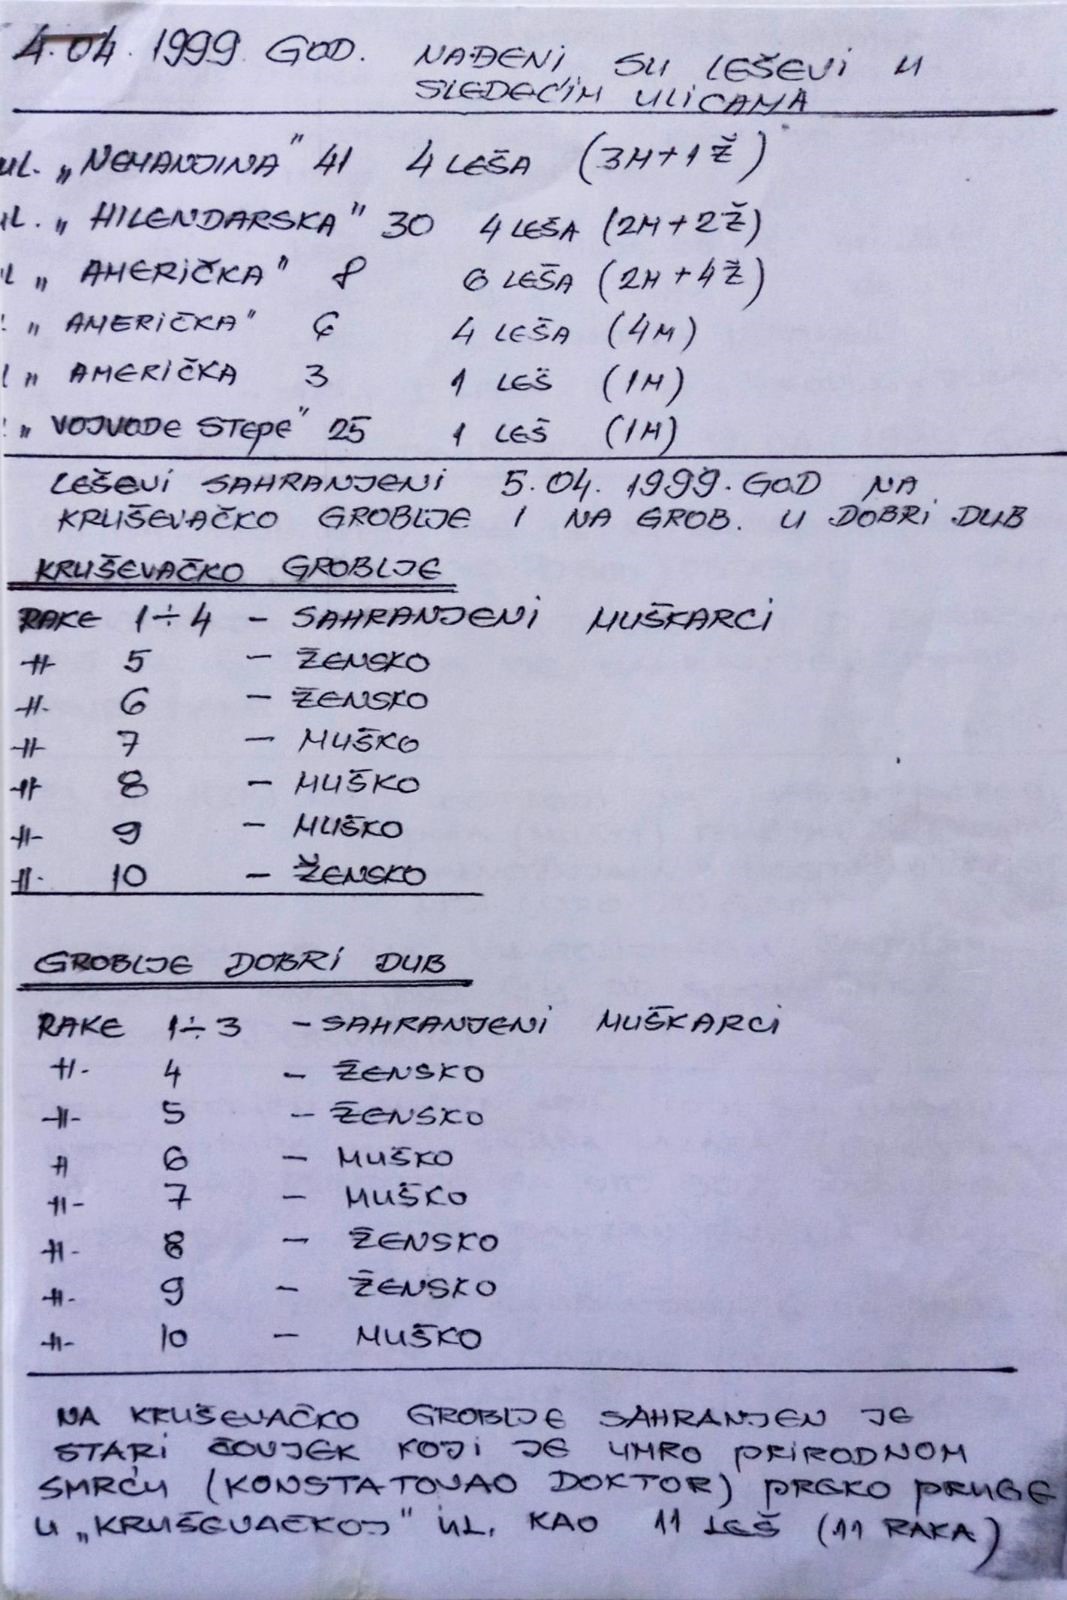 4.04.1999 GOD. NAĐENI SU LEŠEVI U
SLEDEĆIM ULICAMA
UL. „NEMANJINA" 41 4 LEŠA (3M+1Ž)
UL. „HILENDARSKA" 30 4 LEŠA (2M+2Ž)
L „AMERIČKA" 8 6 LEŠA (2M+4Ž)
„AMERIČKA" 6 4 LEŠA (4M)
L „ AMERIČKA 3 1 LEŠ (1M)
„VOJVODE STEPE" 25 1 LEŠ (1M)
LEŠEVI SAHRANJENI 5.04.1999.GOD NA
KRUŠEVAČKO GROBLJE I NA GROB. U DOBRI DUB
KRUŠEVAČKO GROBLJE
RAKE 1÷4 - SAHRANJENI MUŠKARCI
-||- 5 - ŽENSKO
-||- 6 - ŽENSKO
-||- 7 - MUŠKO
-||- 8 - MUŠKO
-||- 9 - MUŠKO
-||- 10 - ŽENSKO
GROBLJE DOBRI DUB
RAKE 1÷3 - SAHRANJENI MUŠKARCI
-||- 4 - ŽENSKO
-||- 5 - ŽENSKO
-||- 6 - MUŠKO
-||- 7 - MUŠKO
-||- 8 - ŽENSKO
-||- 9 - ŽENSKO
-||- 10 - MUŠKO
NA KRUŠEVAČKO GROBLJE SAHRANJEN JE
STARI ČOVJEK KOJI JE UMRO PRIRODNOM
SMRĆU (KONSTATOVAO DOKTOR) PREKO PRUGE
U „KRUŠEVAČKOJ" UL. KAO 11 LEŠ (11 RAKA)